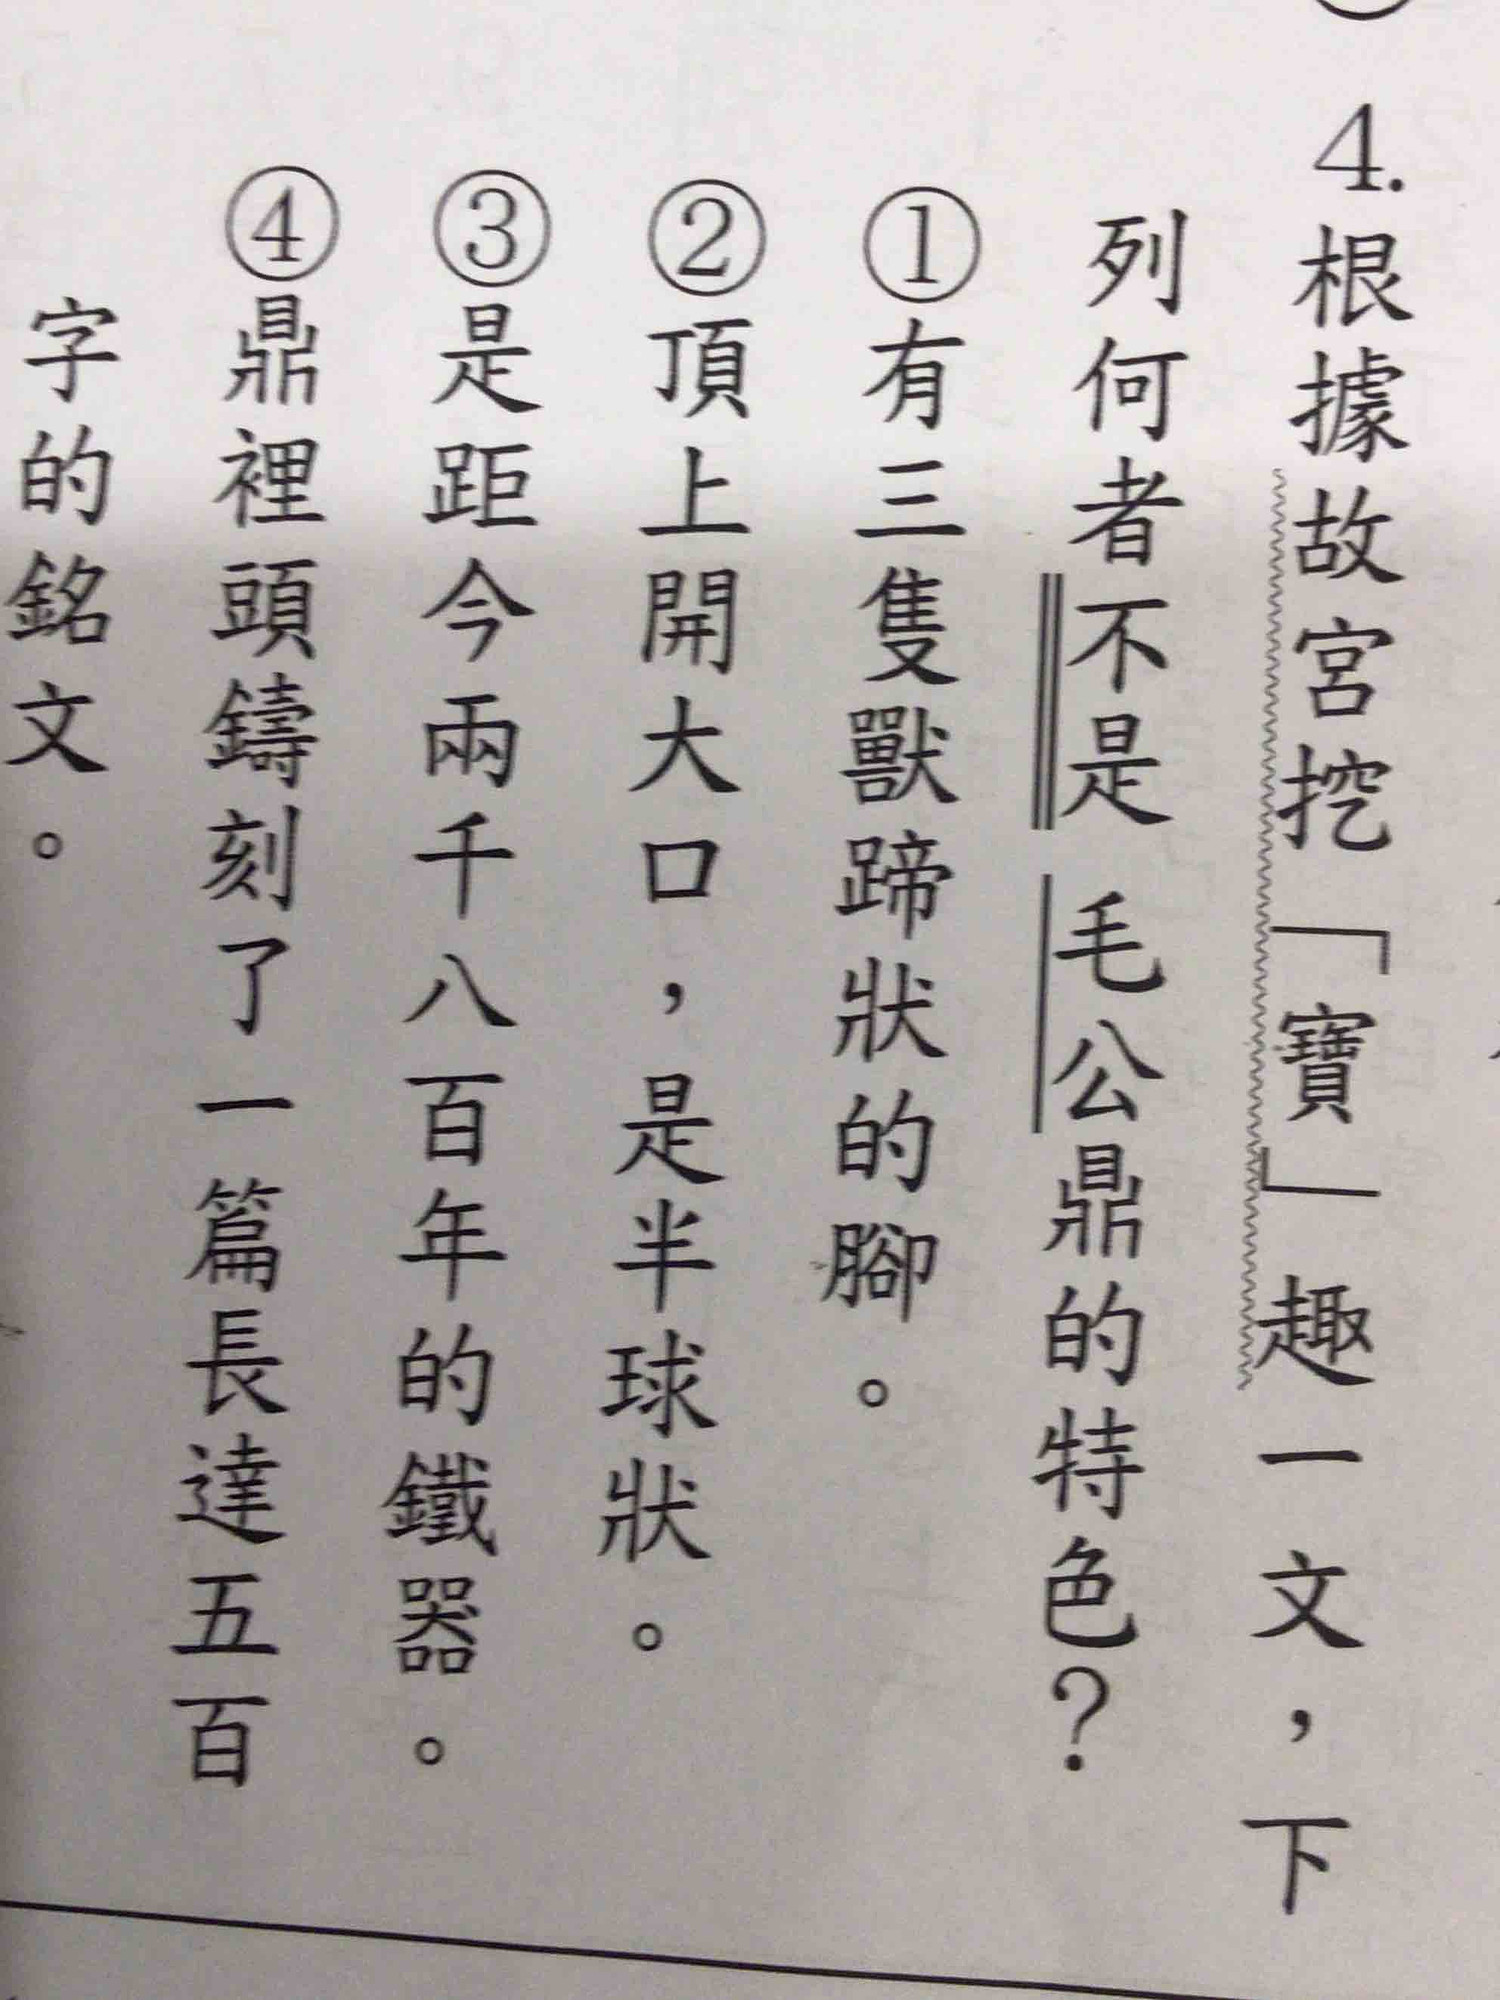 4.根據故宮挖「寶」趣一文，下
列何者不是毛公鼎的特色？
①有三隻獸蹄狀的腳。
②頂上開大口，是半球狀。
③是距今兩千八百年的鐵器。
④鼎裡頭鑄刻了一篇長達五百
字的銘文。